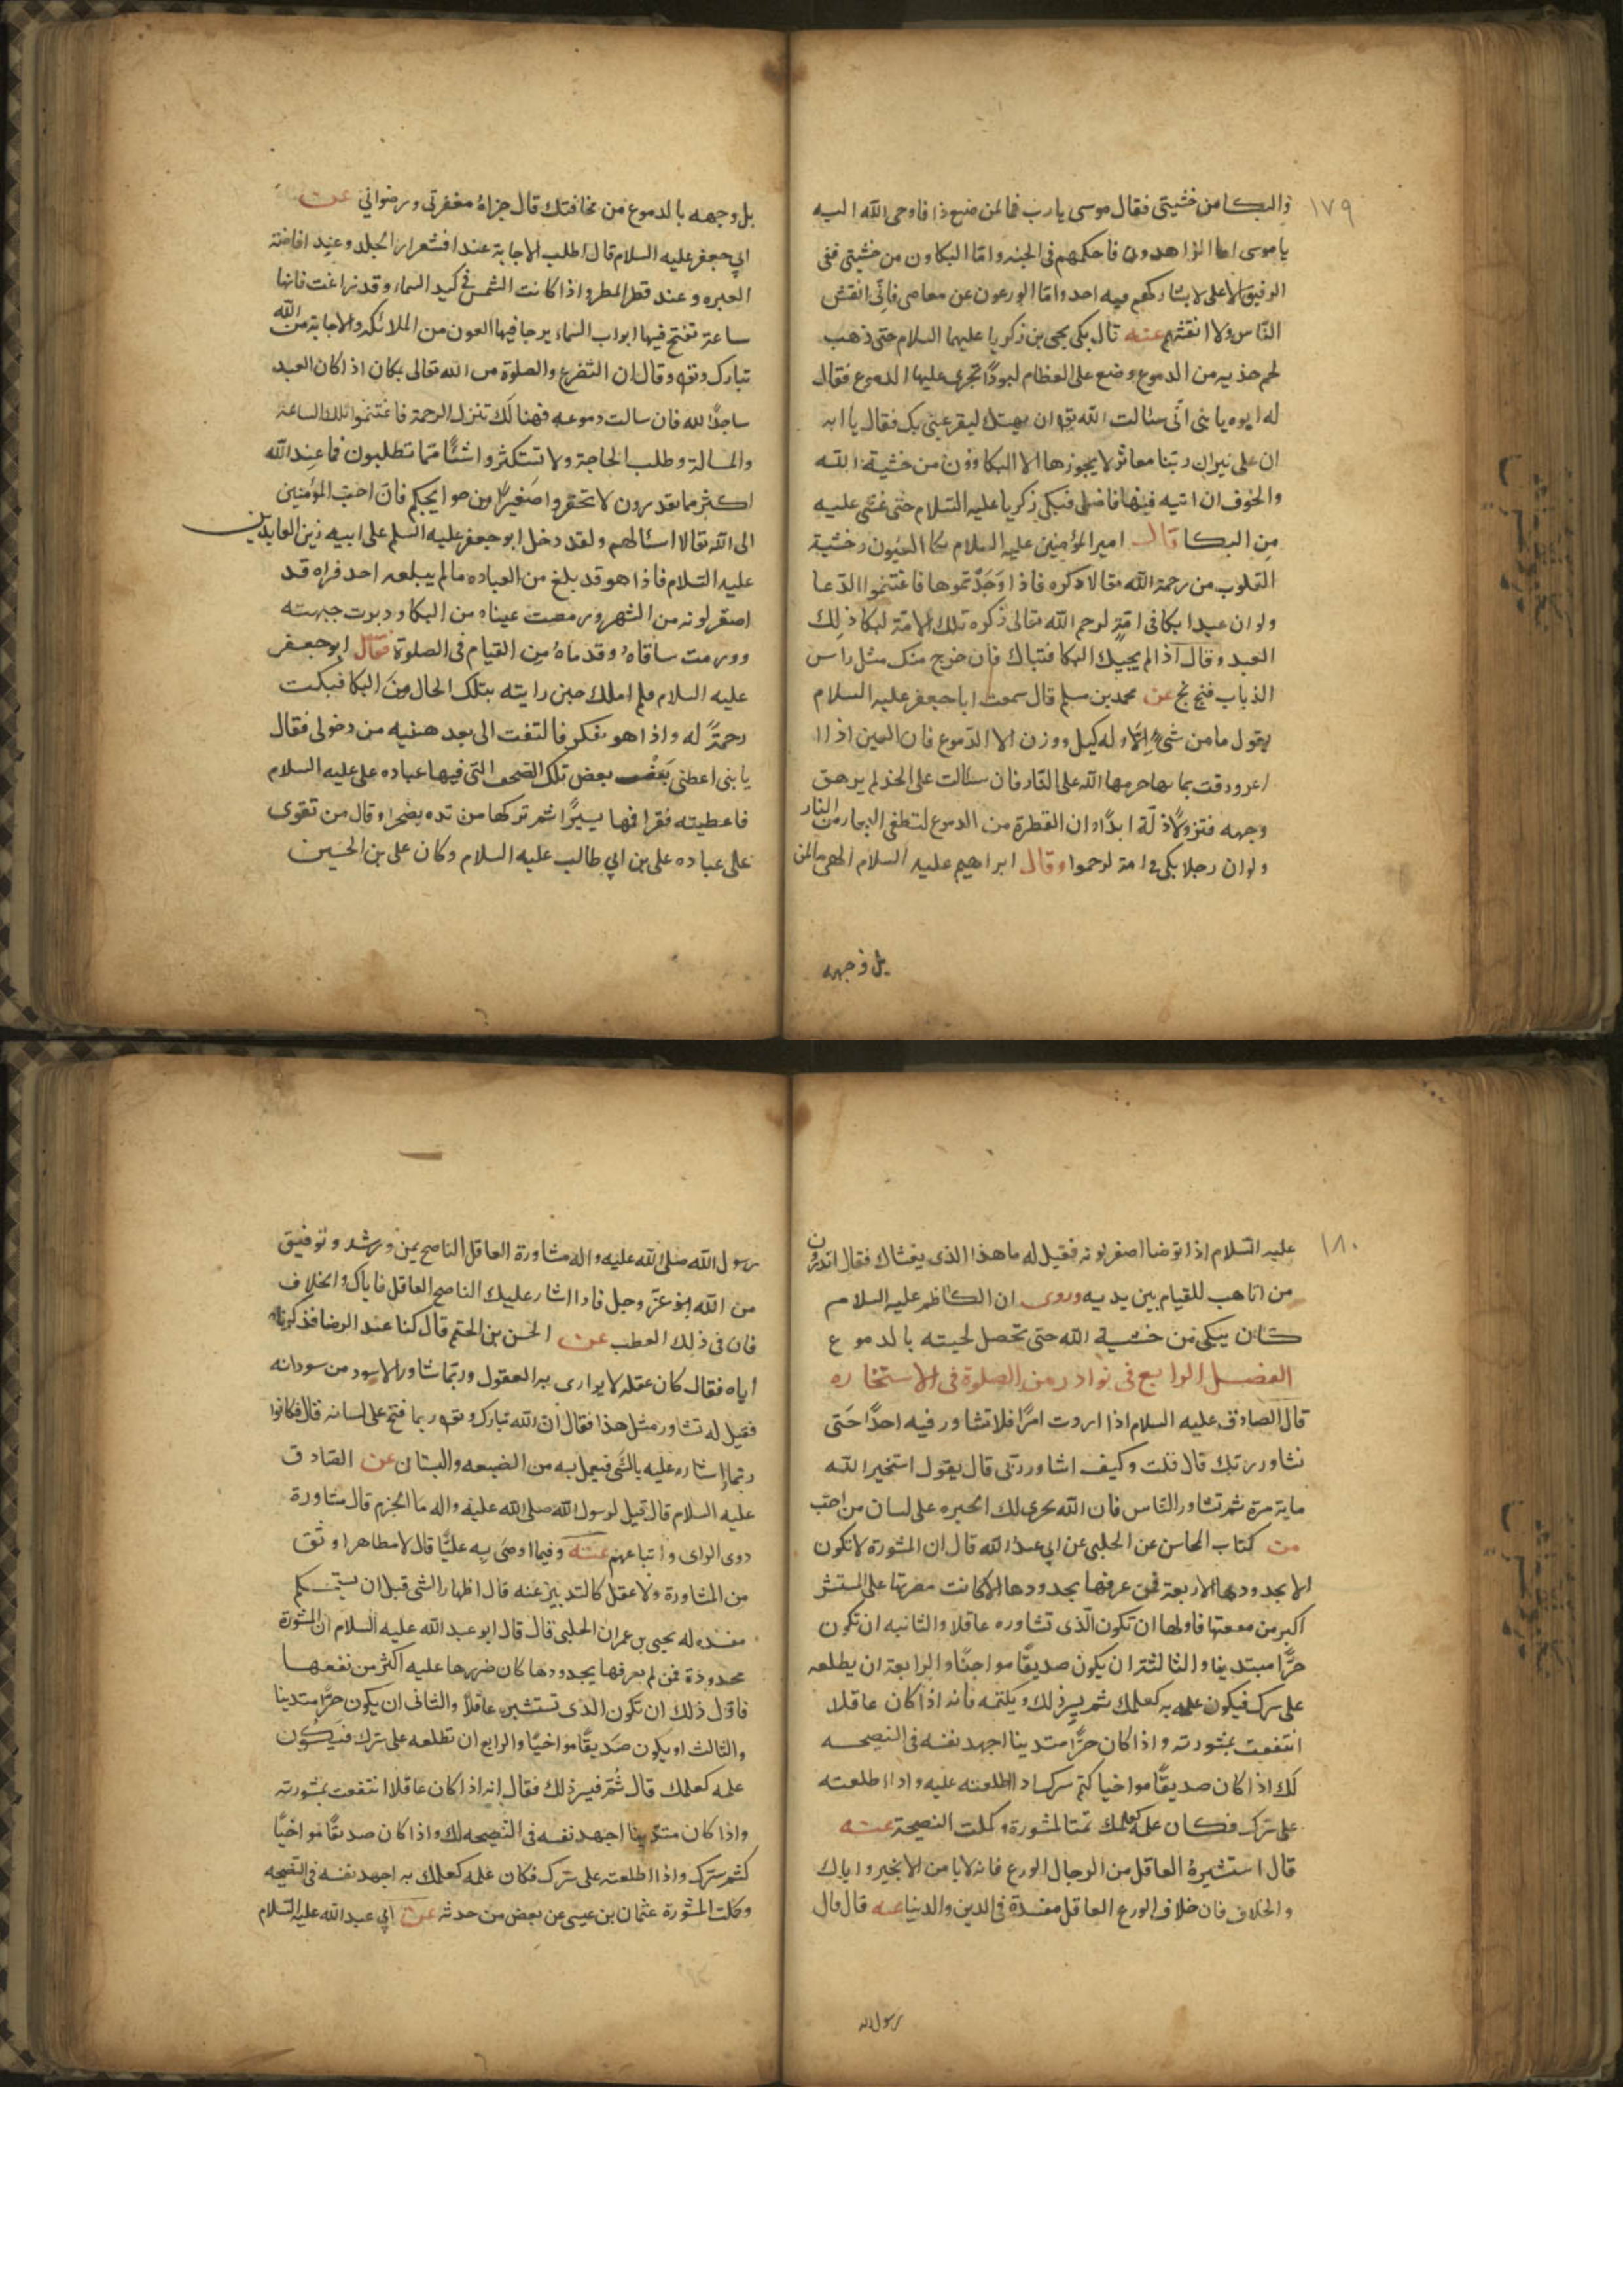 ١٧٩
والبكا من خشيتى فقال موسى يارب فما لمن صنع ذا فاوحى الله اليه
يا موسى اما الزاهدون فاحكمهم فى الجنه واما البكاون من خشيتى ففى
الرفيق الاعلى لا يشاركهم فيه احد واما الورعون عن معاصى فانّى افتش
النّاس ولا افتشهم عنه قال بكى يحيى بن زكريا عليهما السلام حتى ذهب
لحم خديه من الدموع وضع على العظام لبودًا تجرى عليها الدموع فقال
له ابوه يا بنى انّى سئالت الله تع ان يهبك لى ليقر عينى بك فقال يا ابه
ان على نيران ربّنا معاثر لا يجوزها الا البكاوون من خشية الله
والخوف ان اتيه فيها فاضل فبكى زكريا عليه السّلام حتى غشى عليه
من البكا قال امير المؤمنين عليه السلام بكا العيون وخشية
القلوب من رحمة الله تعالا ذكره فاذا وَجَدْتموها فاغتنموا الدّعا
ولو ان عبدا بكا فى امّةٍ لرحم الله تعالى ذكره تلك الامّة لبكا ذلك
العبد وقال اذا لم يجيك البكا فتباك فان خرج منك مثل راس
الذباب فبخ بخ عن محمد بن مسلم قال سمعت ابا جعفر عليه السلام
يقول ما من شىءٍ الّا وله كيل ووزن الا الدّموع فان العين اذا
اغرورقت بمايها حرمها الله على النّار فان سئالت على الخد لم يرهق
وجهه قتر ولا ذلّة ابدًا وان القطرة من الدموع لتطفى البحار من النار
ولو ان رجلا بكى فى امة لرحموا وقال ابراهيم عليه السلام الهى ما لمن
بل وجهه
بل وجهه بالدموع من مخافتك قال جزاهُ مغفرتى ورضوانى عن
ابى جعفر عليه السلام قال اطلب الاجابة عند اقشعرار الجلد وعند افاضة
العبره وعند قطر المطر واذا كانت الشمس فى كبد السماء وقد زاغت فانها
ساعة تفتح فيها ابواب السماء يرجا فيها العون من الملائكه والاجابة من الله
تبارك وتع وقال ان التضرع والصلوة من الله تعالى بكان اذا كان العبد
ساجدًا لله فان سالت دموعه فهنالَك تنزل الرحمة فاغتنموا تلك الساعة
والمسالة وطلب الحاجة ولا تستكثروا شئًا ممّا تطلبون فما عند الله
اكثر مما تقدرون لا تحقروا صغيرًا من حوايجكم فان احبّ المؤمنين
الى الله تعالا اسئالهم ولقد دخل ابو جعفر عليه السلم على ابيه زين العابدين
عليه السّلام فاذا هو قد بلغ من العباده ما لم يبلعه احد فراه قد
اصفر لونه من السّهر ورمصت عيناه من البكا ودبرت جبهته
وورمت ساقاهُ وقدماهُ مِن القيام فى الصلوة فقال ابو جعفر
عليه السلام فلم املك حين رايته بتلك الحال مِنَ البكا فبكيت
رحمةً له واذا هو يفكر فالتفت الى بعد هنيه من دخولى فقال
يا بنى اعطنى بَعْضَ بعض تلك الصّحف التى فيها عباده على عليه السلام
فاعطيته فقرا فيها يسيرًا ثم تركها من يده تضجرا وقال من تقوى
على عباده على بن ابى طالب عليه السلام وكان على بن الحسين
١٨٠
عليه السّلام اذا توضا اصفر لونه فقيل له ما هذا الذى يغشاك فقال اتدرون
من اتاهب للقيام بين يديه وروى ان الكاظم عليه السلام
كان يبكى من خشية الله حتى تخضل لحيته بالدموع
الفصل الرابع فى نوادر من الصلوة فى الاستخاره
قال الصادق عليه السلام اذا اردت امرًا فلا تشاور فيه احدًا حَتى
تشاور ربّك قال قلت وكيف اشاور ربّى قال يقول استخير الله
ماية مرة ثم تشاور النّاس فان الله يجرى لك الخيره على لسان من احبّ
من كتاب المحاسن عن الحلبى عن ابى عبد الله قال ان المشورة لا تكون
الا بحدودها الاربعة فمن عرفها بحدودها والا كانت مضرتها على المستشير
اكبر من منفعتها فاولها ان تكون الّذى تشاوره عاقلا والثانيه ان تكون
حرًّا متدينا والثالثة ان يكون صديقًا مواخيًا والرابعة ان يطلعه
على سرك فيكون علمه به كعلمك ثم يسرّ ذلك ويكتمه فانه اذا كان عاقلا
انتفعت بمشورته واذا كان حرًّا متدينا اجهد نفسه فى النصيحه
لَك اذا كان صديقًا مواخيا كتم سرك اذا اطلعته عليه واذا اطلعته
على سرّك فكان علمه كعلمك تمت المشورة وكملت النصيحة عنه
قال استشيرهُ العاقل من الرجال الورع فانه لا يامن الا بخير واياك
والخلاف فان خلاف الورع العاقل مفسدة فى الدين والدنيا عنه قال قال
رسول الله
رسول الله صلى الله عليه واله مشاورة العاقل الناصح يمن ورشد وتوفيق
من الله عزّ وجل فاذا اشار عليك الناصح العاقل فاياك والخلاف
فان فى ذلك العطب عن الحسن بن الجهم قال كنا عند الرضا فذكرنا
اباه فقال كان عقله لا يوارى به العقول وربّما شاور الاسود من سودانه
فقيل له تشاور مثل هذا فقال انّ الله تبارك وتع ربما فتح على لسانه قال فكانوا
ربّما اشاره عليه بالشّى فيعمل به من الضيعه والبستان عن الصّادق
عليه السلام قال قيل لرسول الله صلى الله عليه واله ما الحزم قال مشاورة
ذوى الراى واتباعهم عنه وفيما اوصَى بِه عليًّا قال لا مظاهرا وثق
من المشاورة ولا عقل كالتدبير عنه قال اظهار الشى قبل ان يستحكم
مفسده له يحيى بن عمران الحلبى قال قال ابو عبد الله عليه السلام ان المشورة
محدودة فمن لم يعرفها بحدودها كان ضررها عليه اكثر من نفعها
فاوّل ذلك ان تكون الذى تستشير عاقلًا والثانى ان يكون حرًّا متدينا
والثالث او يكون صَديقًا مواخيًا والرابع ان تطلعه على سرّك فَيكُون
علمه كعلمك قال ثُمّ فيسر ذلك فقال انه اذا كان عاقلا انتفعت بمشورته
واذا كان متدينا اجهد نفسه فى النّصيحه لك واذا كان صديقًا مواخيًا
كتم سرك واذا اطلعته على سرّك فكان علمه كعلمك به اجهد نفسه فى النّصيحه
وكملت المشورة عثمان بن عيسى عن بعض من حدثه عن ابى عبد الله عليه السّلام